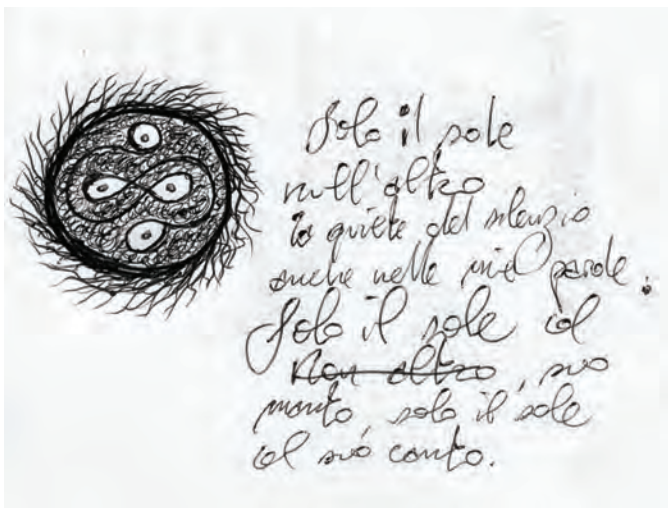 Solo il sole
null'altro
la quiete del silenzio
anche nelle mie parole.
Solo il sole al
Non altro, suo
punto, solo il sole
al suo canto.